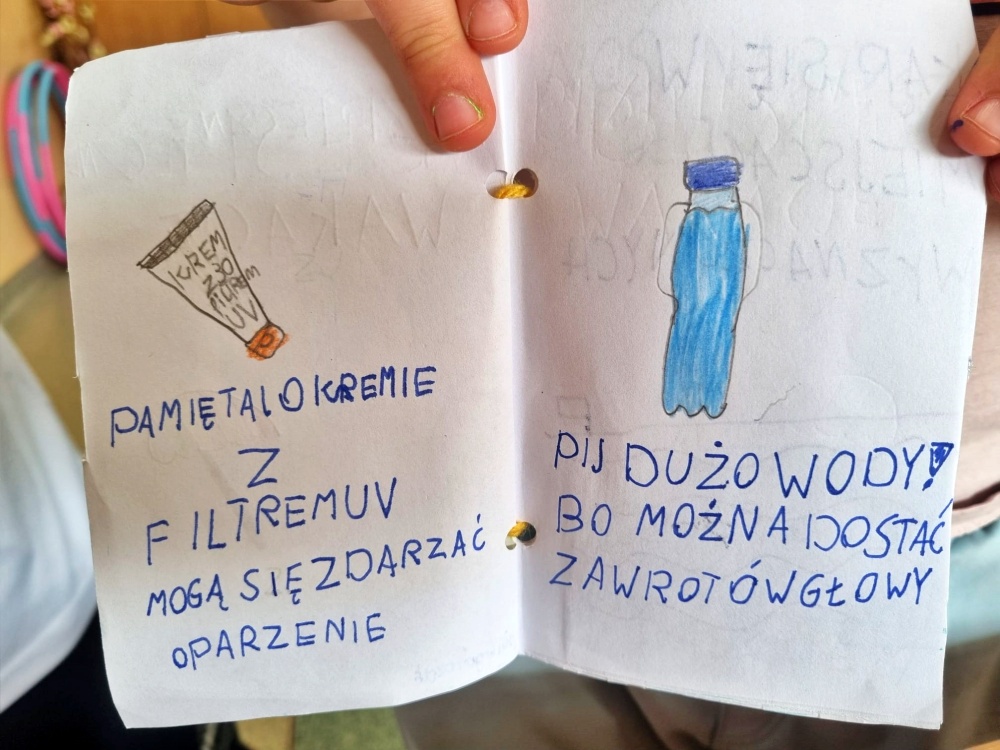 KREM
Z 30
FILTREM
UV
PAMIĘTAJ O KREMIE
Z
FILTREM UV
MOGĄ SIĘ ZDARZAĆ
OPARZENIE
PIJ DUŻO WODY!
BO MOŻNA DOSTAĆ
ZAWROTÓW GŁOWY